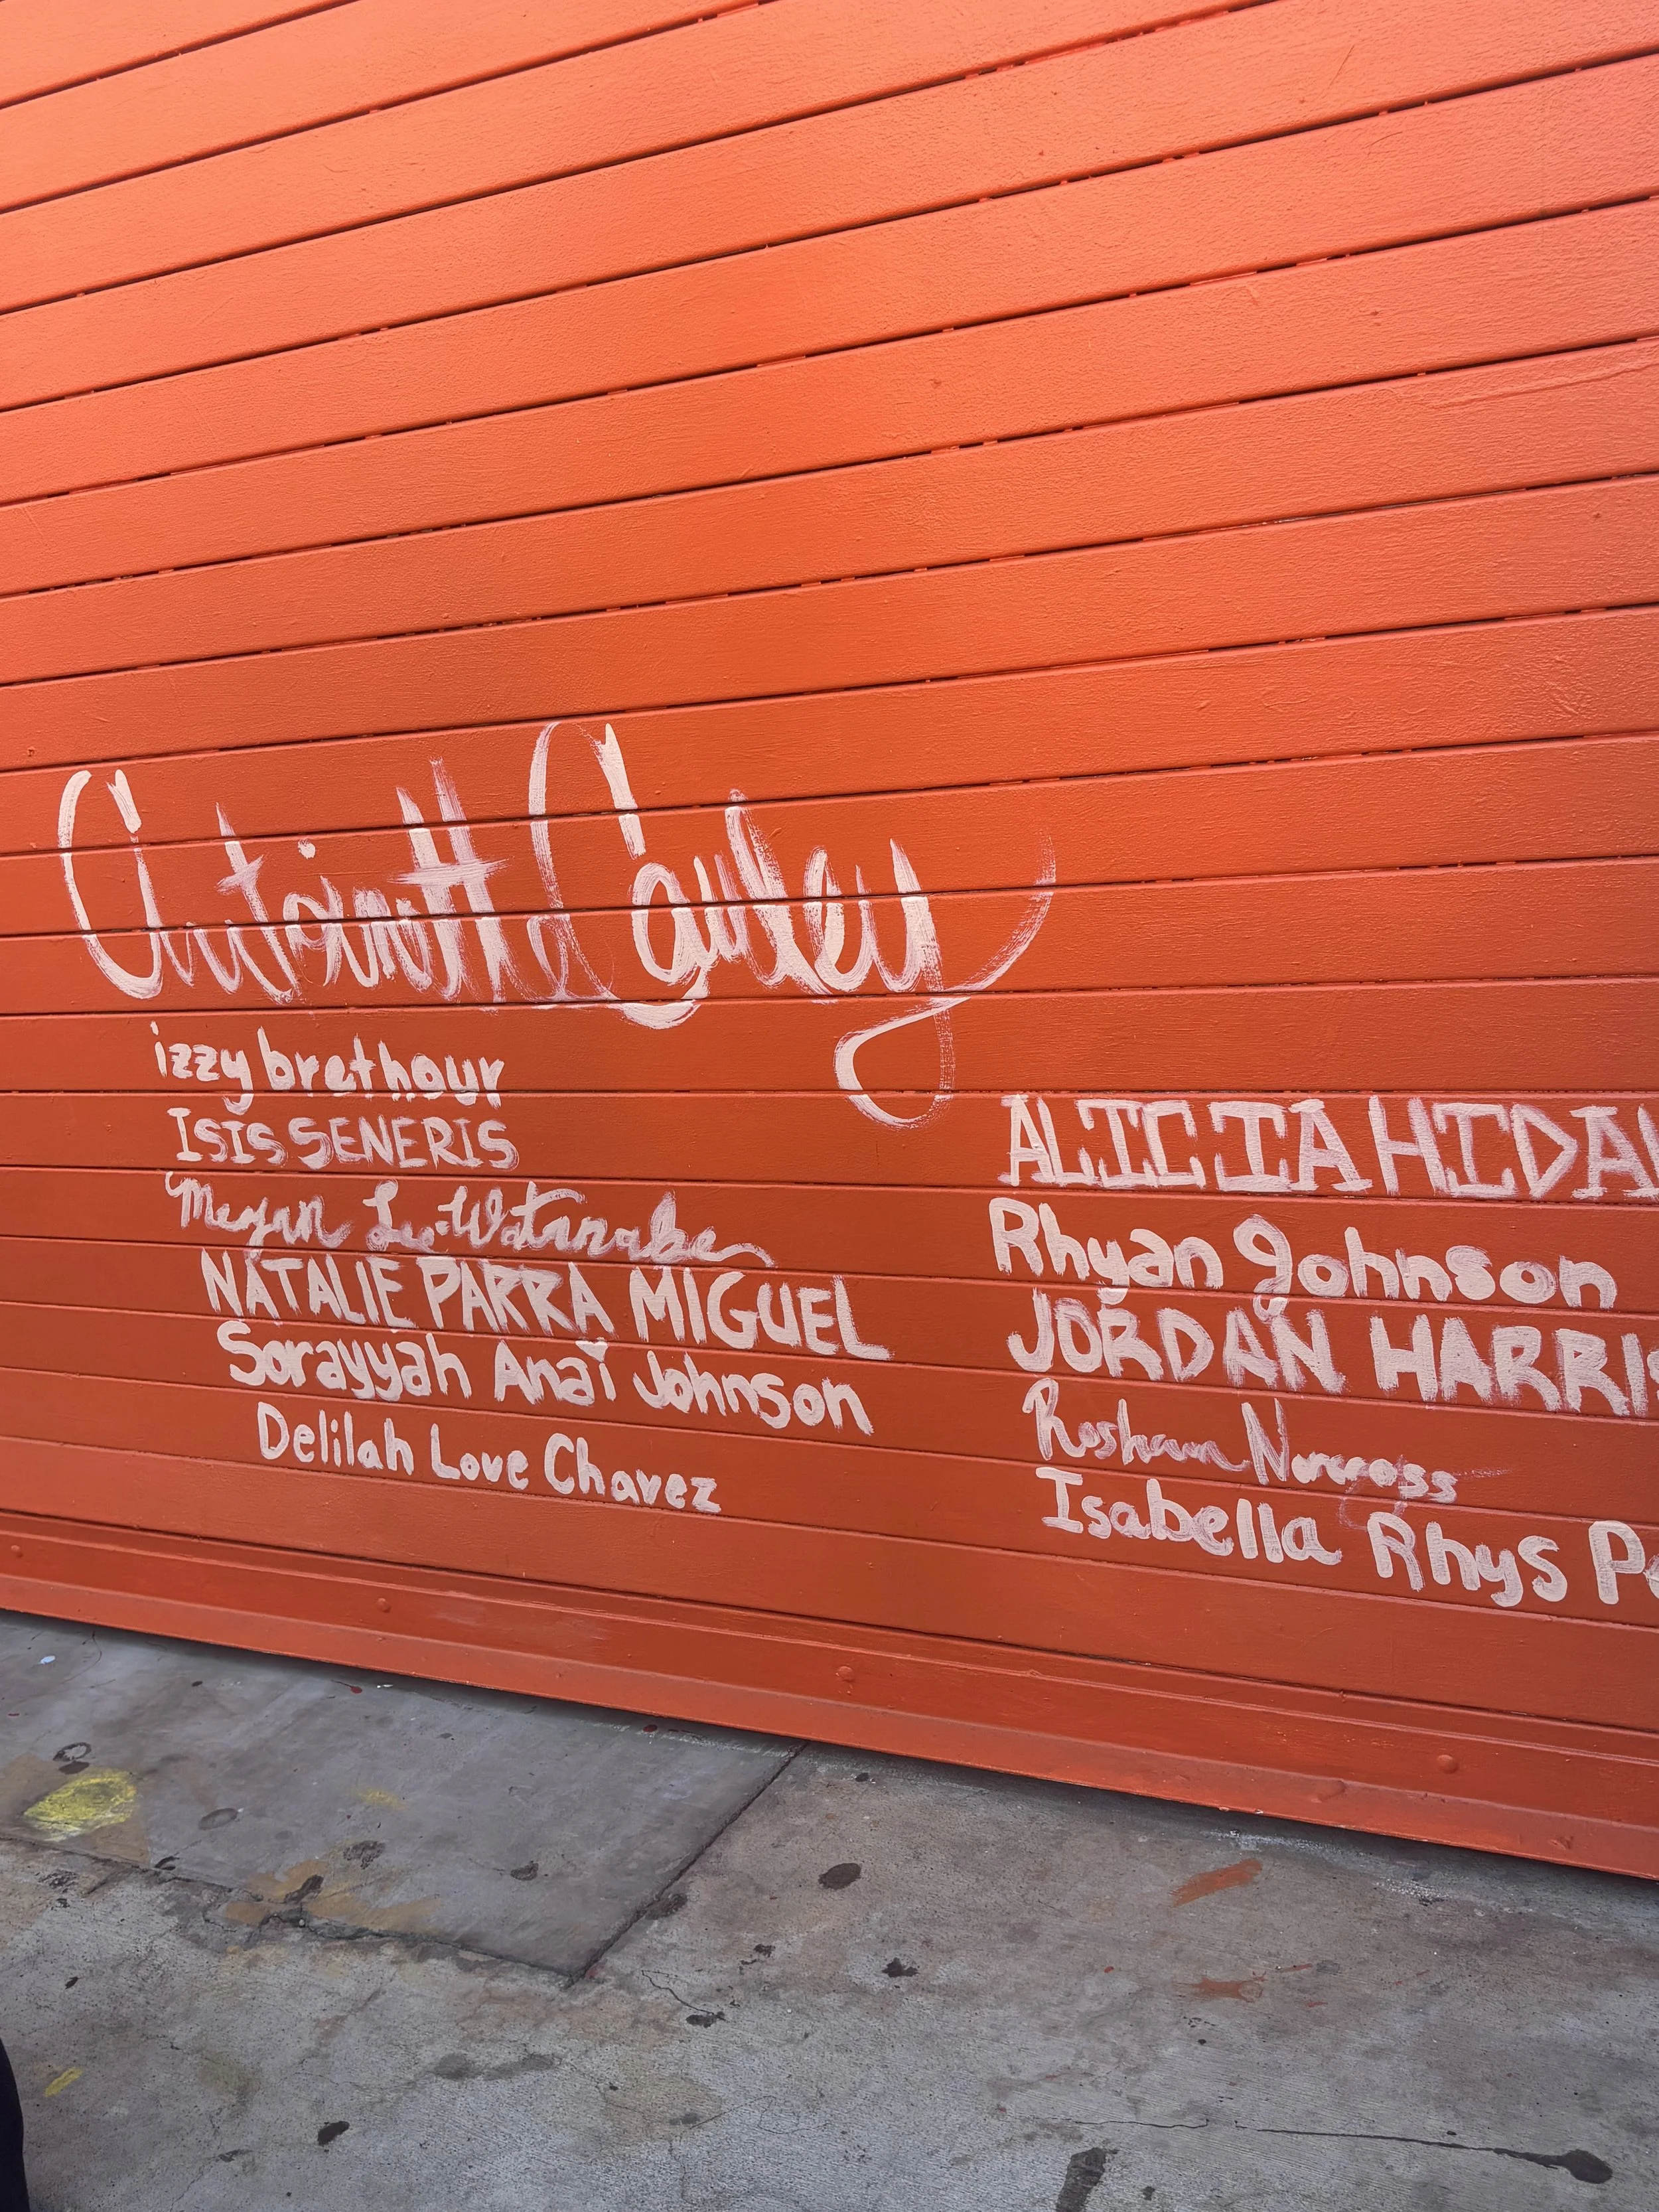 izzy brethour
ISIS SENERIS
Megan Lu-Watanabe
NATALIE PARRA MIGUEL
Sorayyah Anaï Johnson
Delilah Love Chavez
ALICIA
Rhyan Johnson
JORDAN
Roshawn Norcross
Isabella Rhys